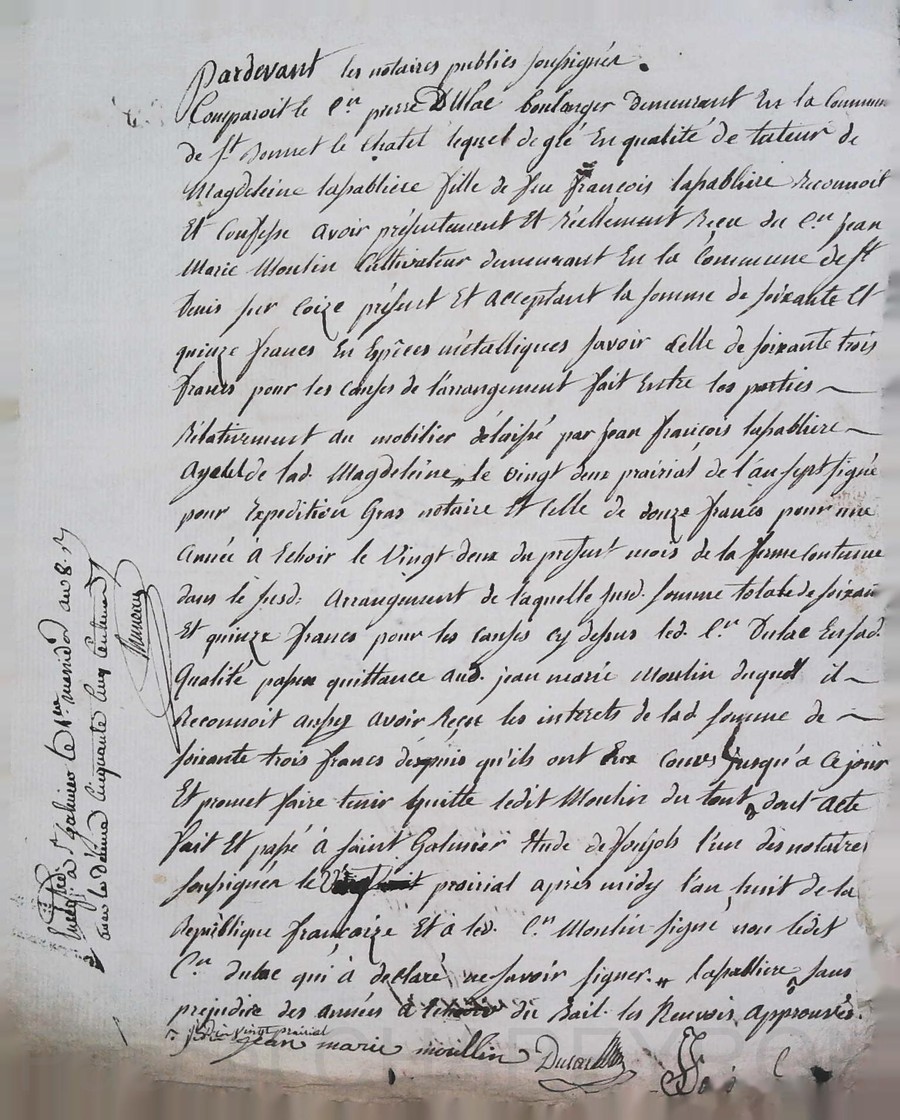 Pardevant les notaires publics soussignés.
Comparoit le C.en pierre Dulac boulanger demeurant En la Commune
de s.t Bonnet le Chatel lequel de gré En qualité de tuteur de
Magdeleine lapabliere fille de feu françois lapabliere Reconnoit
Et Confesse avoir présentement Et Réellement Reçu du C.en Jean
Marie Moulin Cultivateur demeurant En la Commune de s.t
Denis sur Coize présent Et acceptant la somme de soixante Et
quinze francs En Espèces métalliques savoir Celle de soixante trois
francs pour les causes de l'arrangement fait Entre les parties
Rélativement au mobilier délaissé par Jean françois lapabliere
ayeul de lad. Magdeleine, le vingt deux prairial de l'an sept signé
pour Expédition Gras notaire Et Celle de douze francs pour une
année à Echoir le Vingt deux du présent mois de la ferme Contenue
dans le susd. arrangement de laquelle susd. somme totale de soixante
Et quinze francs pour les causes cy dessus led. C.en Dulac En sad.
Qualité passe quittance aud. jean marie Moulin duquel il
Reconnoit aussy avoir Reçu les interets de lad somme de
soixante trois francs depuis qu'ils ont Eu Cours jusqu'à Ce jour
Et promet faire tenir quitte ledit Moulin du tout, dont acte
fait Et passé à saint Galmier Etude de l'un des notaires
soussignés le prairial après midy l'an huit de la
République françoise Et à led. C.en Moulin signé, non ledit
C.en dulac qui à declaré ne savoir signer. lapabliere sans
prejudice des années à du Bail. les Renvois approuvés.
vingt prairial
jean marie moullin
Enregistré à s.t Galmier le 1.er messidor an 8.
avec le décime Cinquante Cinq Centimes